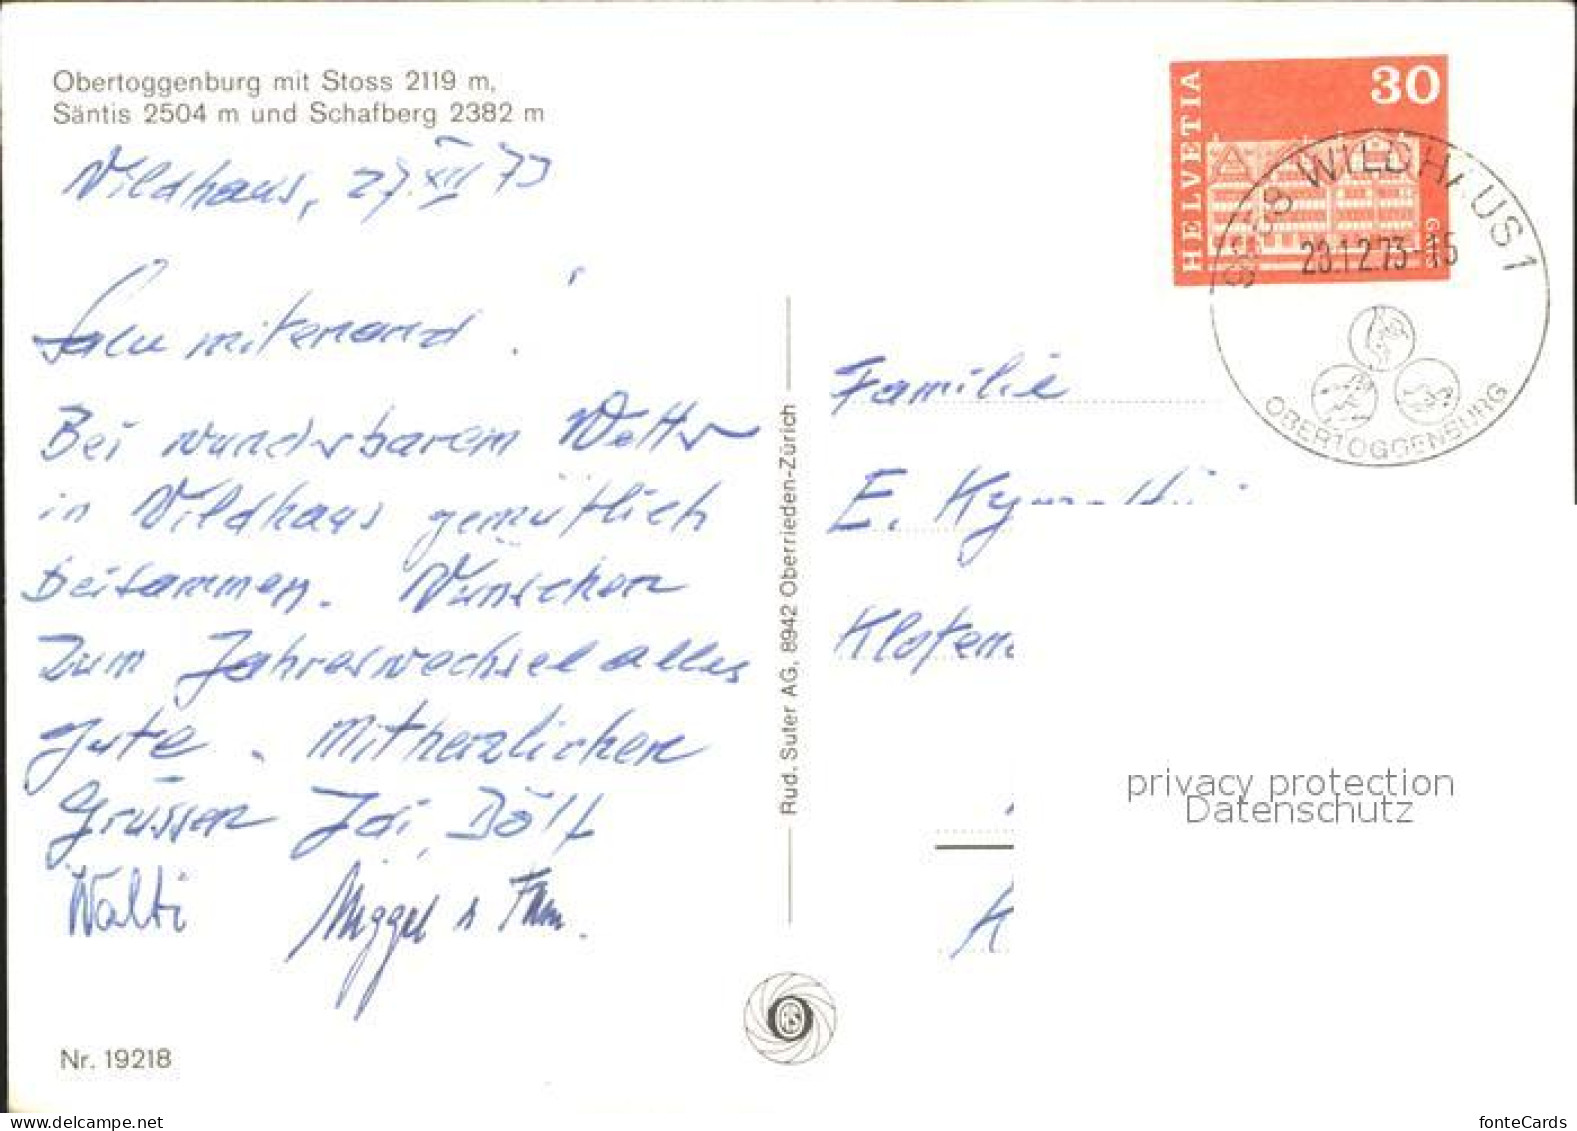 Obertoggenburg mit Stoss 2119 m,
Säntis 2504 m und Schafberg 2382 m
Wildhaus, 27. XII 73
Salu mitenand!
Bei wunderbarem Wetter
in Wildhaus gemütlich
beisammen. Wünschen
zum Jahreswechsel alles
gute. Mit herzlichen
Grüssen Dölf
Walti Miggel
Nr. 19218
Rud. Suter AG, 8942 Oberrieden-Zürich
HELVETIA
30
WILDHAUS 1
.12.73-15
OBERTOGGENBURG
Familie
E.
Kloten
privacy protection
Datenschutz
www.delcampe.net
fonteCards